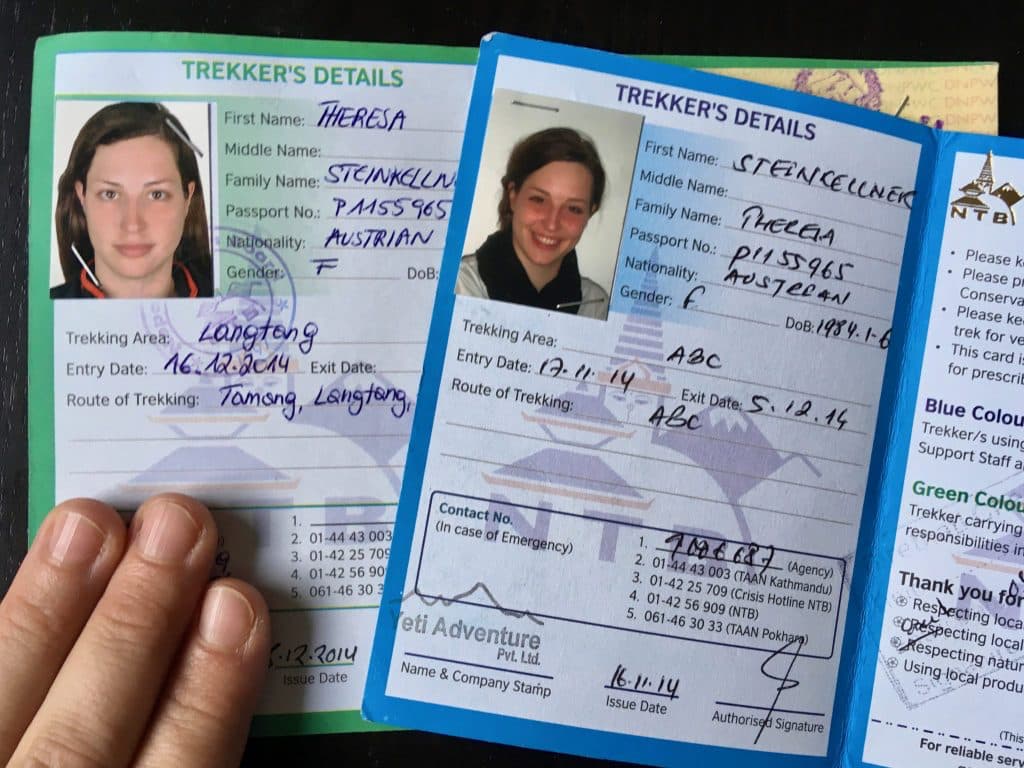 TREKKER'S DETAILS
First Name: THERESA
Middle Name:
Family Name: STEINKELLN
Passport No.: P1155965
Nationality: AUSTRIAN
Gender: F DoB:
Trekking Area: Langtang
Entry Date: 16.12.2014 Exit Date:
Route of Trekking: Tamang, Langtang,
1.
2. 01-44 43 003
3. 01-42 25 709
4. 01-42 56 90
5. 061-46 30 3
.12.2014
Issue Date
TREKKER'S DETAILS
First Name: STEINKELLNER
Middle Name:
Family Name: THERESA
Passport No.: P1155965
Nationality: AUSTRIAN
Gender: F DoB: 1984.1-6
Trekking Area: ABC
Entry Date: 17.11.14 Exit Date: 5.12.14
Route of Trekking: ABC
Contact No.
(In case of Emergency)
1. (Agency)
2. 01-44 43 003 (TAAN Kathmandu)
3. 01-42 25 709 (Crisis Hotline NTB)
4. 01-42 56 909 (NTB)
5. 061-46 30 33 (TAAN Pokhara)
Yeti Adventure
Pvt. Ltd.
Name & Company Stamp
16.11.14
Issue Date
Authorised Signature
NTB
DNPWC DNPW
NTB
• Please k
• Please pr
Conserva
• Please kee
trek for ve
• This card i
for prescrib
Blue Colou
Trekker/s using
Support Staff a
Green Colou
Trekker carrying
responsibilities in
Thank you for
Respecting loca
Respecting local
Respecting natur
Using local produ
(This
For reliable serv